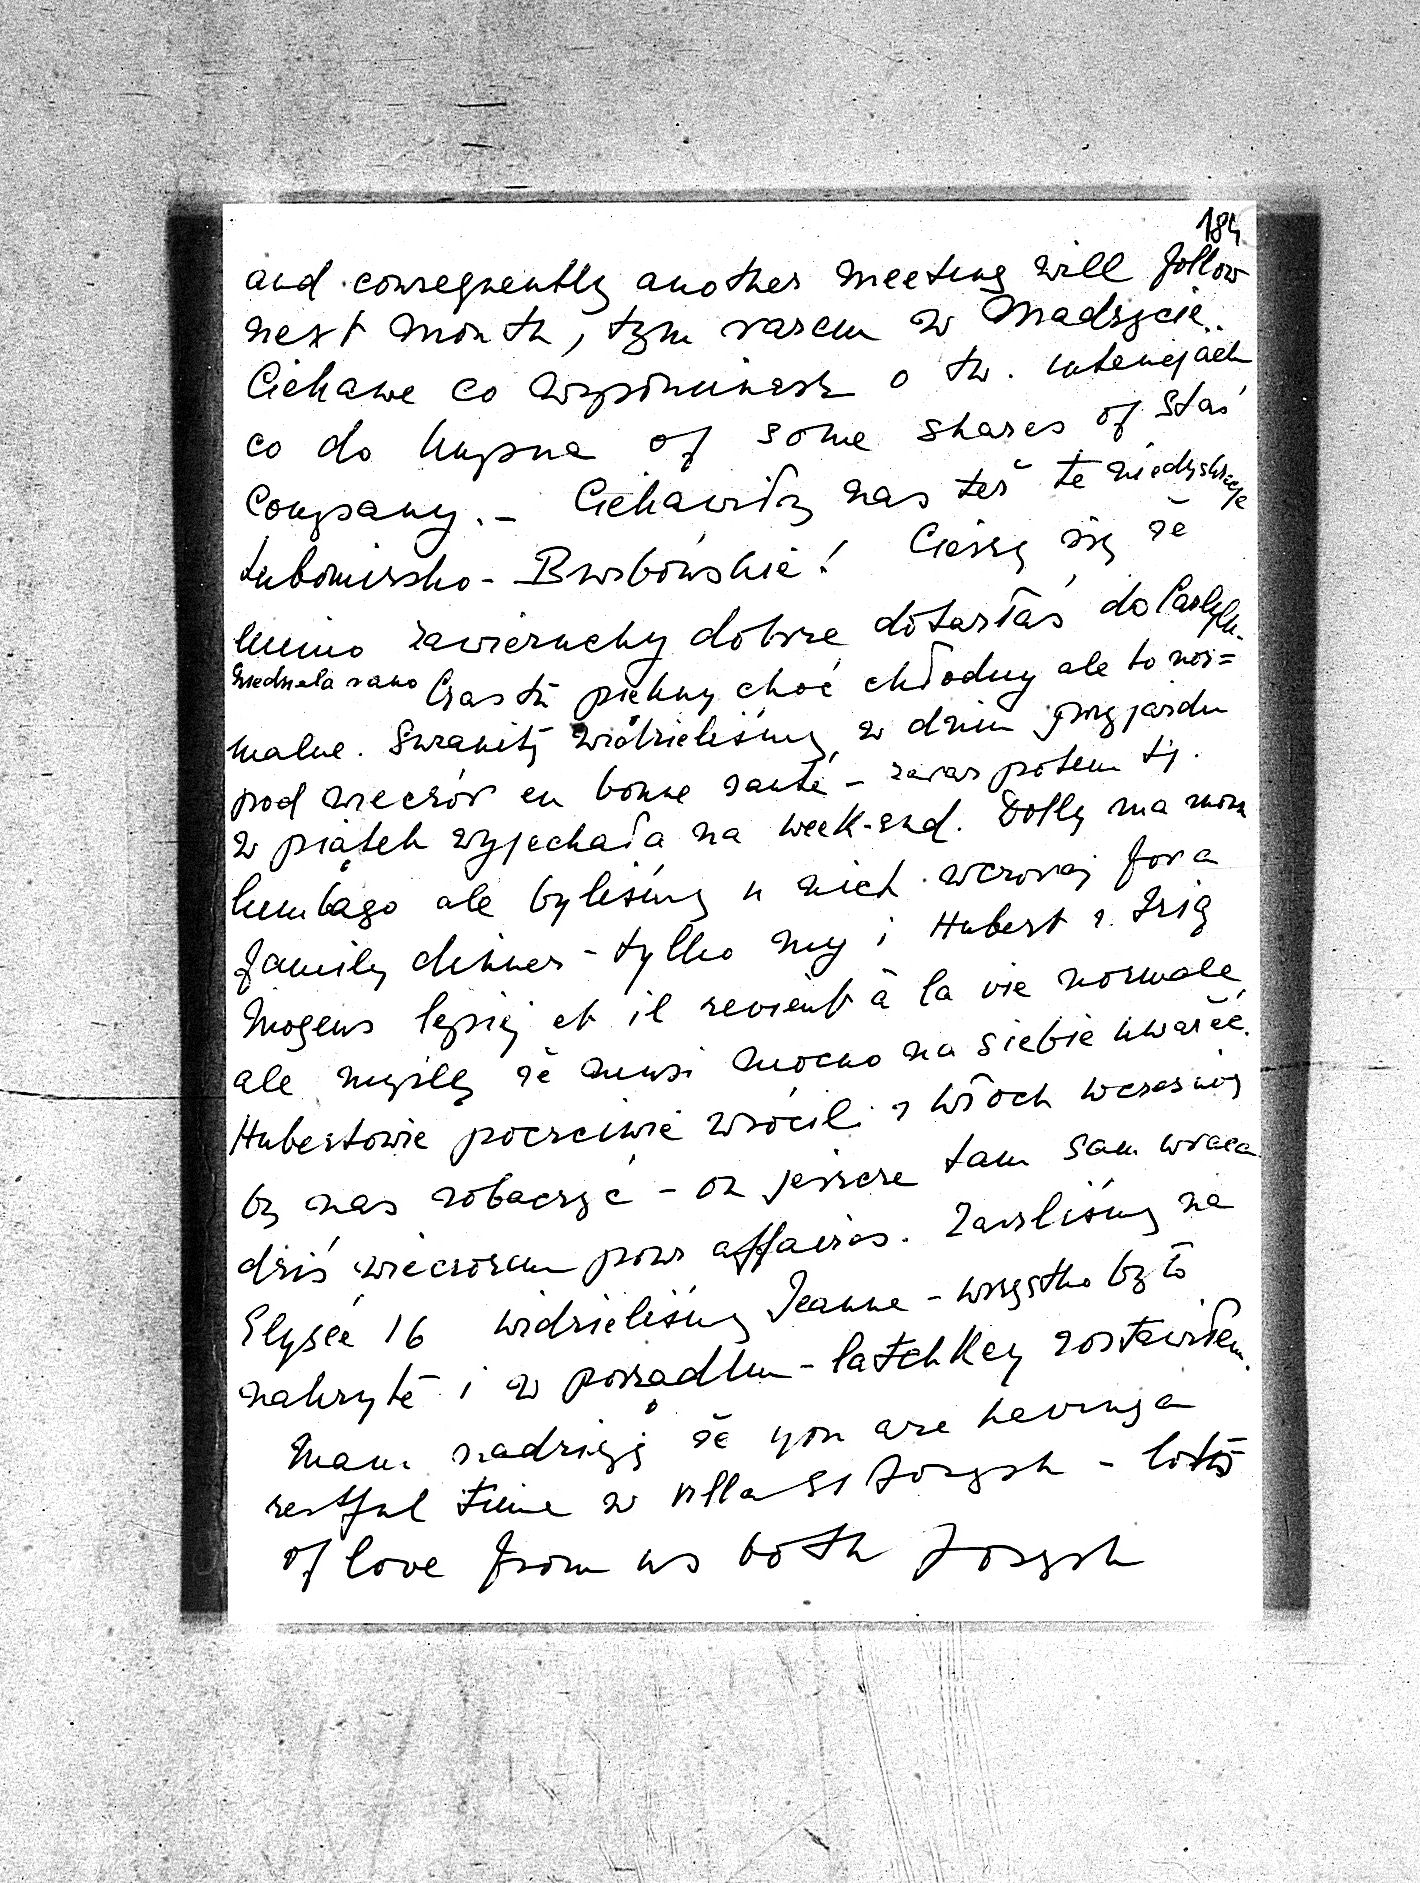 184
and consequently another meeting will follow
next month, tym razem w Madrycie..
Ciekawe co wspominasz o tw. intencjach
co do kupna of some shares of Staś
Company. – Ciekawiły nas też te niedyskrecje
Lubomirsko - Burbońskie! Cieszę się że
mimo zawieruchy dobrze dotarłaś do
Niedziela rano Czas tu piękny choć chłodny ale to nor=
malne. Suzanitę widzieliśmy, w dniu przyjazdu
pod wieczór en bonne santé – zaraz potem tj.
w piątek wyjechała na week-end. Dolly ma
lumbago ale byliśmy u nich wczoraj for a
family dinner - tylko my i Hubert z Izią
Mogens lepiej et il revient à la vie normale,
ale myślę że musi mocno na siebie uważać.
Hubertowie poczciwie wrócili z Włoch wcześniej
by nas zobaczyć – on jeszcze tam sam wraca
dziś wieczorem pour affaires. Zaszliśmy na
Elysée 16 widzieliśmy Jeanne – wszystko było
nakryte i w porządku – latchkey zostawiłem.
Mam nadzieję że you are having a
restful time w villa St Jozeph – lots
of love from us both Jozeph